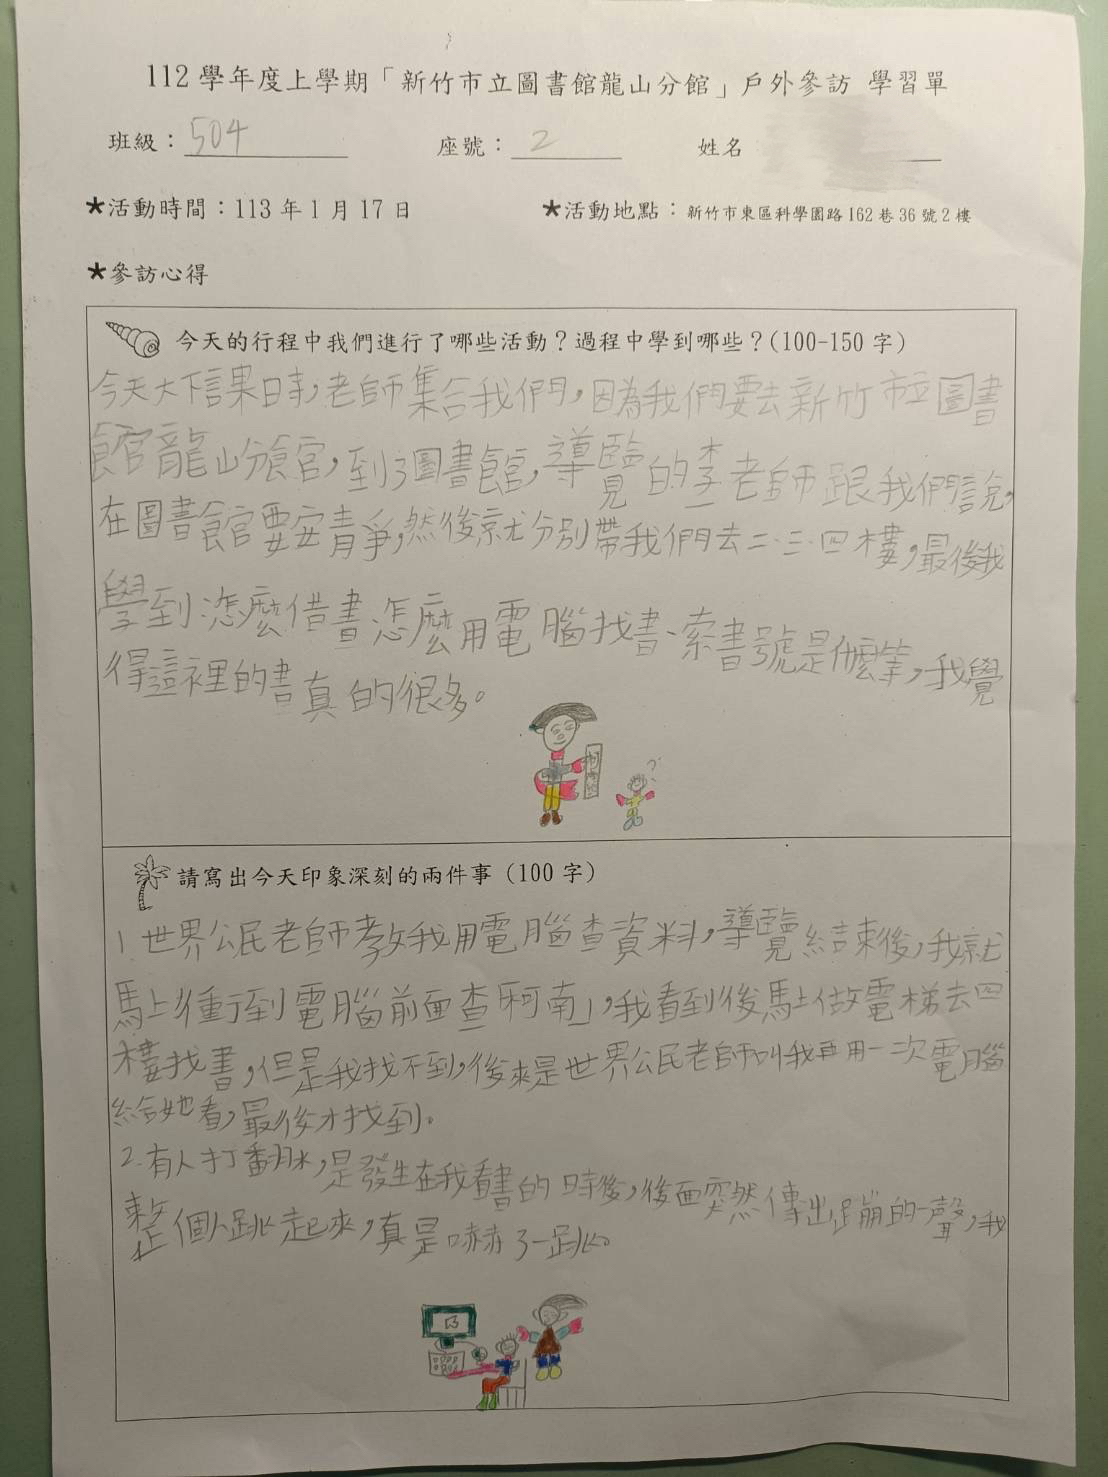 112 學年度上學期「新竹市立圖書館龍山分館」戶外參訪 學習單
班級：504 座號：2 姓名
★活動時間：113 年 1 月 17 日 ★活動地點：新竹市東區科學園路 162 巷 36 號 2 樓
★參訪心得
今天的行程中我們進行了哪些活動？過程中學到哪些？(100-150 字)
今天大下課時，老師集合我們，因為我們要去新竹市立圖書
館龍山分館，到了圖書館，導覽的李老師跟我們說，
在圖書館要安靜，然後就分別帶我們去二、三、四樓，最後我
學到怎麼借書、怎麼用電腦找書、索書號是什麼等，我覺
得這裡的書真的很多。
請寫出今天印象深刻的兩件事 (100 字)
1. 世界公民老師教我用電腦查資料，導覽結束後，我就
馬上衝到電腦前面查「柯南」，我看到後馬上做電梯去四
樓找書，但是我找不到，後來是世界公民老師叫我再用一次電腦
給她看，最後才找到。
2. 有人打翻水，是發生在我看書的時後，後面突然傳出蹦的一聲，我
整個人跳起來，真是嚇了一跳。